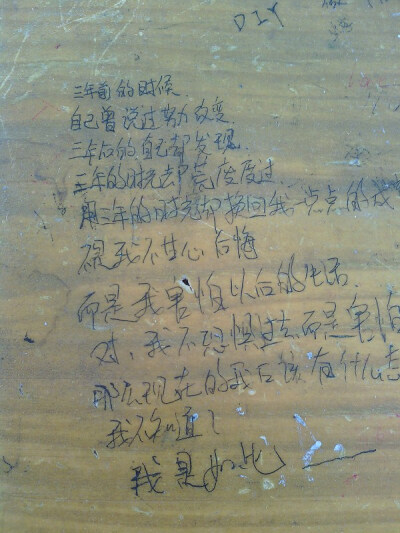 DIY
三年前的时候
自己曾说过努力改变
三年后的自己却发现
三年的时光却荒度度过
用三年的时光却换回我一点点的成
得我不甘心后悔
而是我害怕以后的生活
对,我不恐惧过去而是害怕
那么现在的我应该有什么
我不知道!
我是如此——